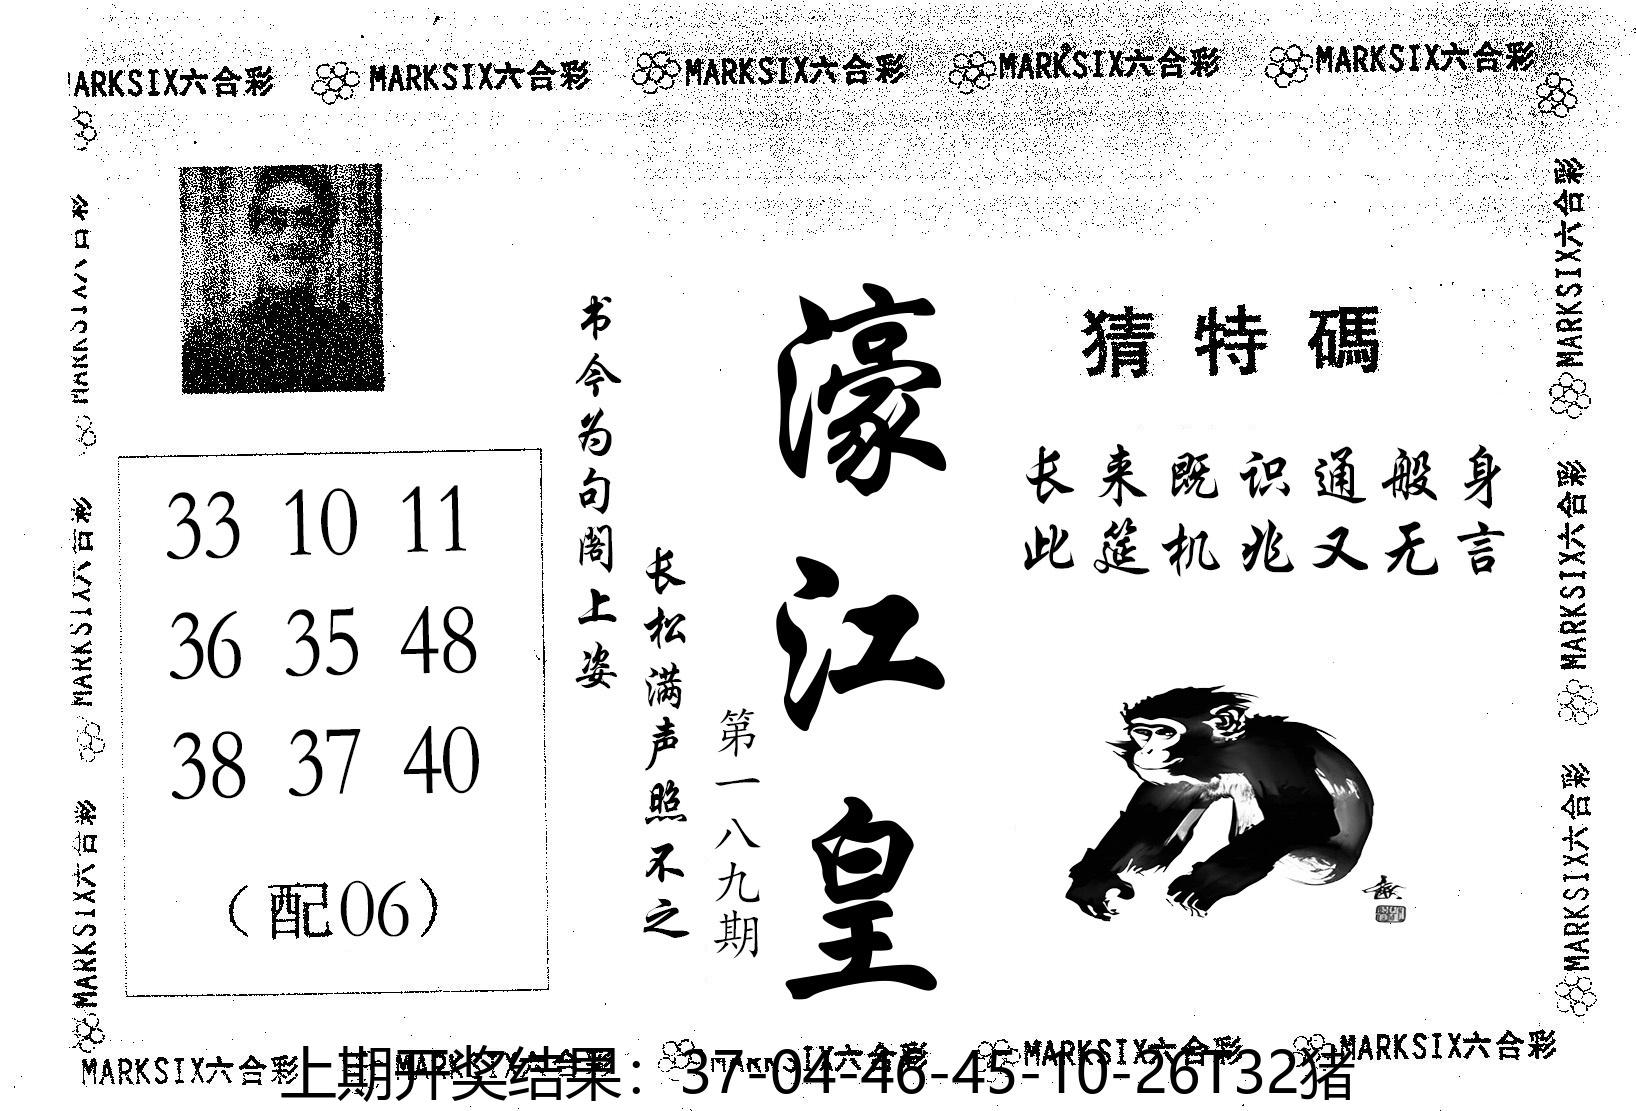 MARKSIX六合彩 MARKSIX六合彩 MARKSIX六合彩 MARKSIX六合彩 MARKSIX六合彩
MARKSIX六合彩
MARKSIX六合彩
MARKSIX六合彩
猜特碼
长来既识通般身
此筵机兆又无言
濠江皇
第一八九期
书今为句阁上姿
长松满声照不之
33 10 11
36 35 48
38 37 40
（配06）
MARKSIX六合彩
MARKSIX六合彩
MARKSIX六合彩
MARKSIX六合彩 MARKSIX六合彩 MARKSIX六合彩 MARKSIX六合彩 MARKSIX六合彩
上期开奖结果：37-04-46-45-10-26T32猪